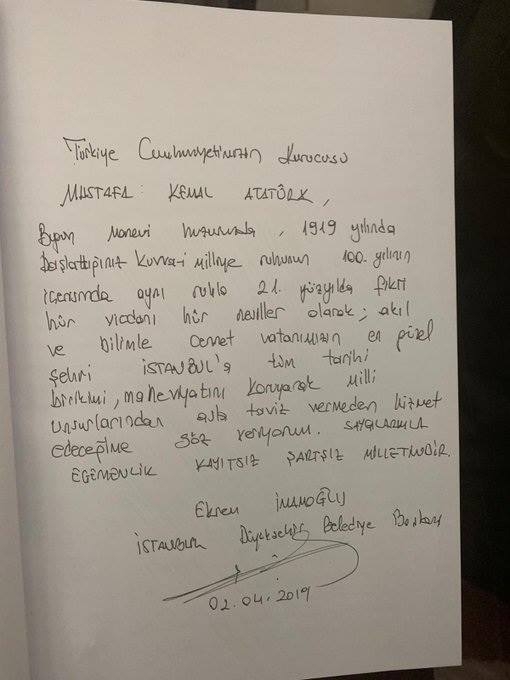 Türkiye Cumhuriyetimizin Kurucusu
MUSTAFA KEMAL ATATÜRK,
Bugün Manevi huzurunda, 1919 yılında
Başlattığınız Kuvva-i Milliye ruhunun 100. yılının
içerisinde aynı ruhla 21. yüzyılda fikri
hür vicdanı hür nesiller olarak; akıl
ve bilimle Cennet vatanımızın en güzel
şehri İSTANBUL'a tüm tarihi
birikimi, maneviyatını koruyarak Milli
unsurlarından asla taviz vermeden hizmet
edeceğime söz veriyorum. SAYGILARIMLA
EGEMENLİK KAYITSIZ ŞARTSIZ MİLLETİNDİR.
Ekrem İMAMOĞLU
İSTANBUL Büyükşehir Belediye Başkanı
02.04.2019